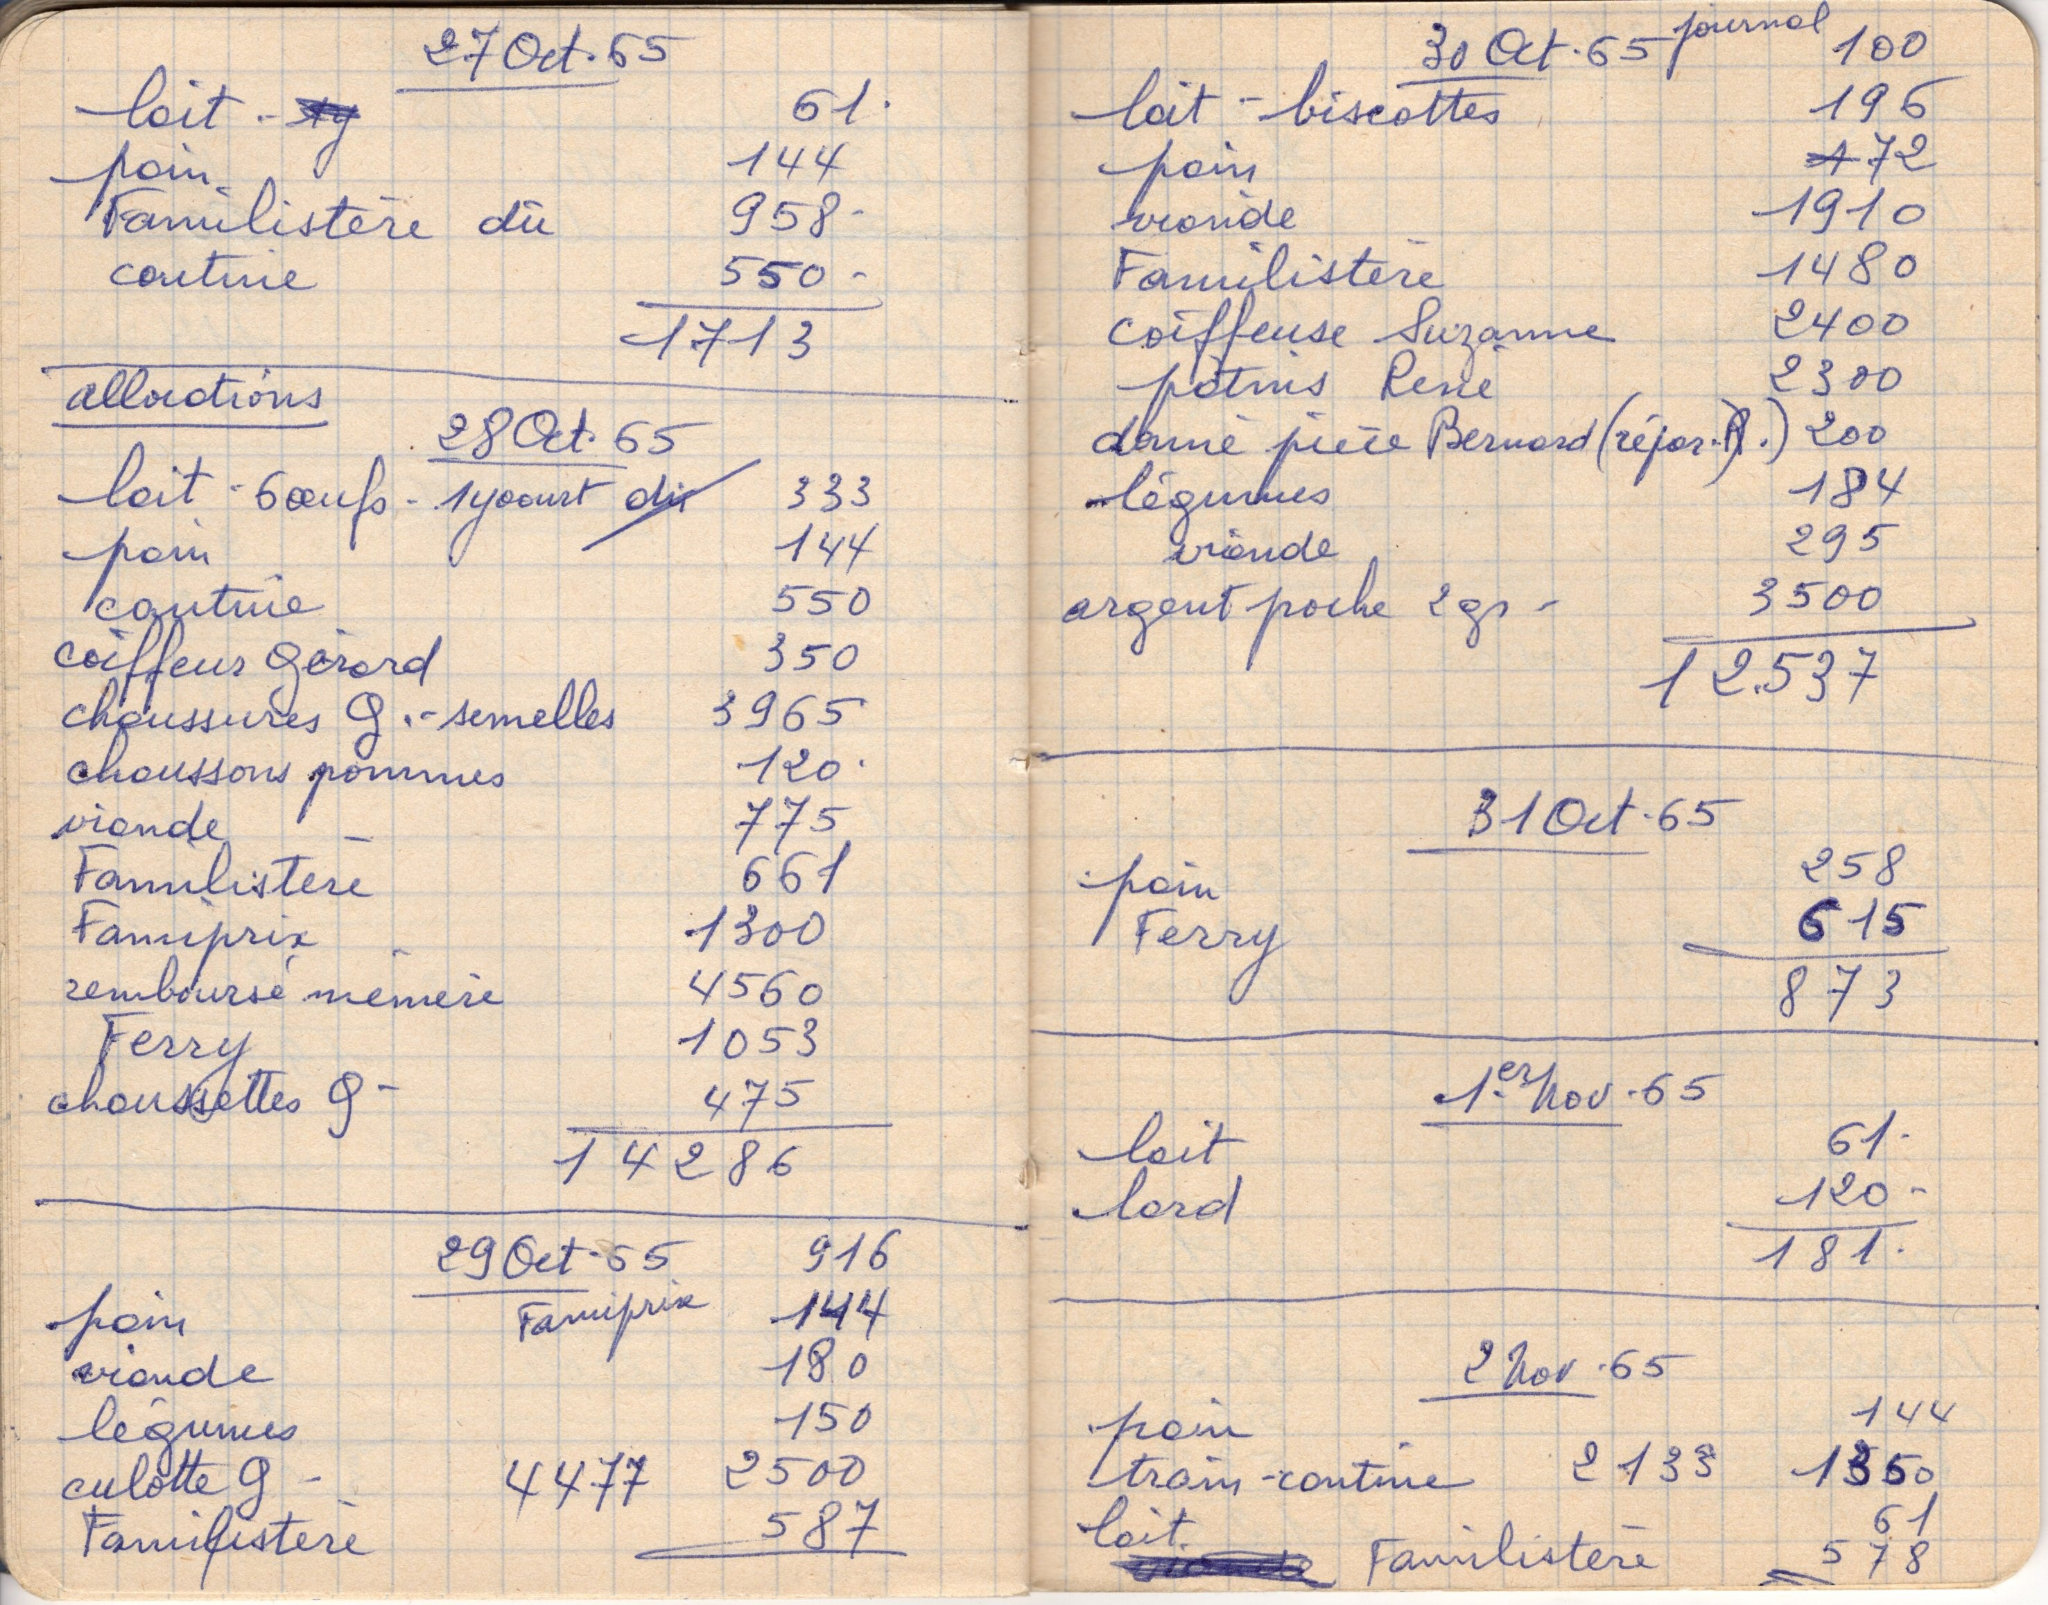 27 Oct. 65
lait - 61.
pain 144
Familistère dû 958-
cantine 550-
1713
allocations
28 Oct. 65
lait - 6 œufs - 1 yaourt dû 333
pain 144
cantine 550
coiffeur Gérard 350
chaussures G. - semelles 3965
chaussons pommes 120.
viande 775
Familistère 661
Famiprix 1300
remboursé mémère 4560
Ferry 1053
chaussettes G - 475
14286
29 Oct. 65 916
Famiprix
pain 144
viande 180
légumes 150
culotte G - 4477 2500
Familistère 587
30 Oct. 65 journal 100
lait - biscottes 196
pain 172
viande 1910
Familistère 1480
coiffeuse Suzanne 2400
patins René 2300
donné pièce Bernard (répar. R.) 200
légumes 184
viande 295
argent poche 2 gs - 3500
12.537
31 Oct. 65
pain 258
Ferry 615
873
1er Nov. 65
lait 61.
lard 120-
181.
2 Nov. 65
pain 144
train - cantine 2133 1350
lait 61
Familistère 578